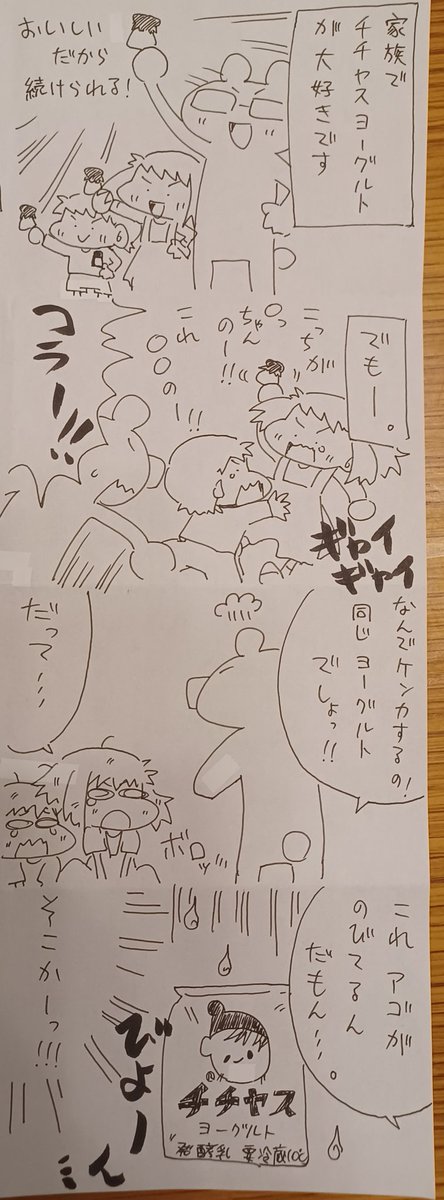 家族で
チチヤスヨーグルト
が大好きです
おいしい
だから
続けられる!
でもー。
こっちが
いっちゃん
のー!!
これ
のー!!!
コラー!!
ギャイ
ギャイ
なんでケンカするの!
同じヨーグルト
でしょっ!!
だって…
ボロッ…
これ アゴが
のびてるん
だもん…。
チチヤス
ヨーグルト
発酵乳 要冷蔵10℃
びよーーん
そこかーっ!!!